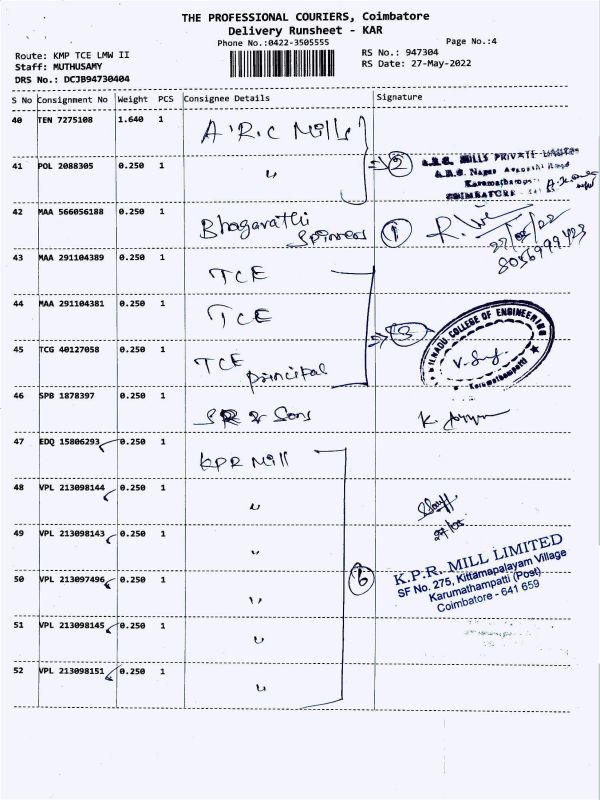 THE PROFESSIONAL COURIERS, Coimbatore
Delivery Runsheet - KAR
Phone No.:0422-3505555
Page No.:4
Route: KMP TCE LMW II
RS No.: 947304
Staff: MUTHUSAMY
RS Date: 27-May-2022
DRS No.: DCJB94730404
S No Consignment No Weight PCS Consignee Details Signature
40 TEN 7275108 1.640 1 A.R.C Mills
41 POL 2088305 0.250 1 " 2
MILLS PRIVATE LIMITED
Nagar
COIMBATORE
42 MAA 566056188 0.250 1 Bhagavathi
Spinners 1
8056999423
43 MAA 291104389 0.250 1 TCE
44 MAA 291104381 0.250 1 TCE 3
COLLEGE OF ENGINEERING
Karumathampatti
45 TCG 40127058 0.250 1 TCE
principal
46 SPB 1878397 0.250 1 & Sons
47 EDQ 15806293 0.250 1 KPR Mill
48 VPL 213098144 0.250 1 "
49 VPL 213098143 0.250 1 "
50 VPL 213097496 0.250 1 " 6
K.P.R. MILL LIMITED
SF No. 275, Kittampalayam Village
Karumathampatti (Post)
Coimbatore - 641 659
51 VPL 213098145 0.250 1 "
52 VPL 213098151 0.250 1 "